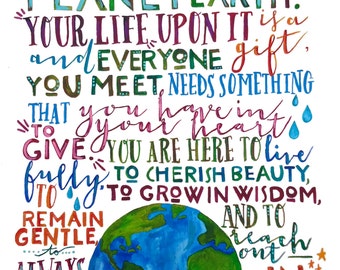 PLANET EARTH.
YOUR LIFE UPON IT is a
and EVERYONE gift,
YOU MEET NEEDS SOMETHING
THAT you have in
your heart
TO
GIVE. YOU ARE HERE TO live
fully, TO CHERISH BEAUTY,
TO TO GROW IN WISDOM,
REMAIN AND TO
GENTLE, reach
to out
ALWAYS